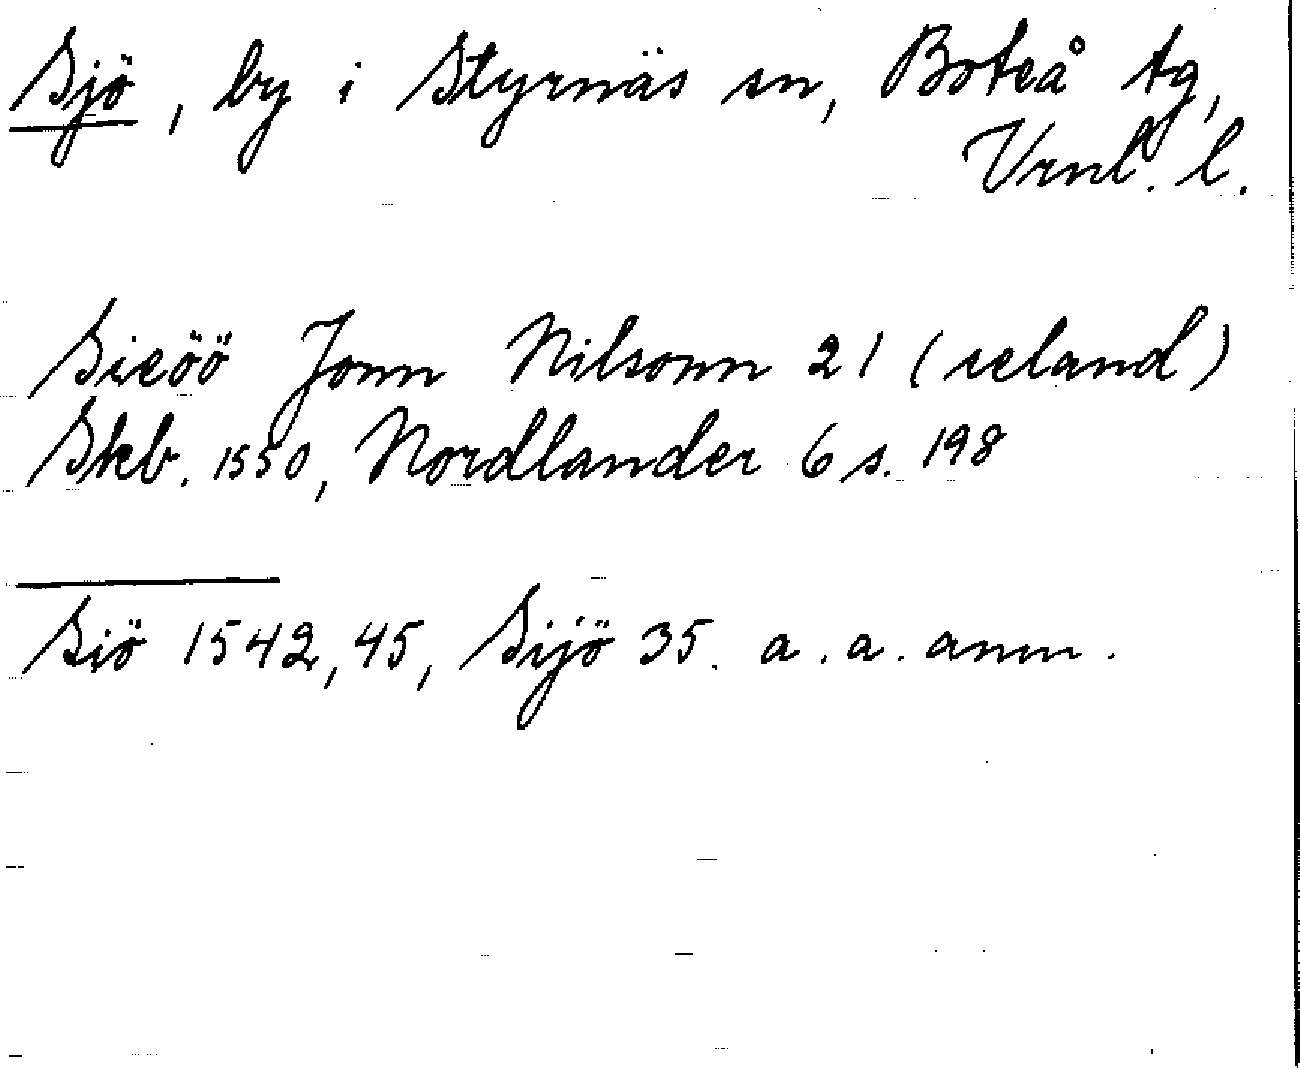 Sjö, by i Styrnäs sn, Boteå tg,
Vrnl. l.
Sieöö Jonn Nilsonn 21 (seland)
Skb. 1550, Nordlander 6 s. 198
Siö 1542, 45, Sijö 35. a. a. anm.